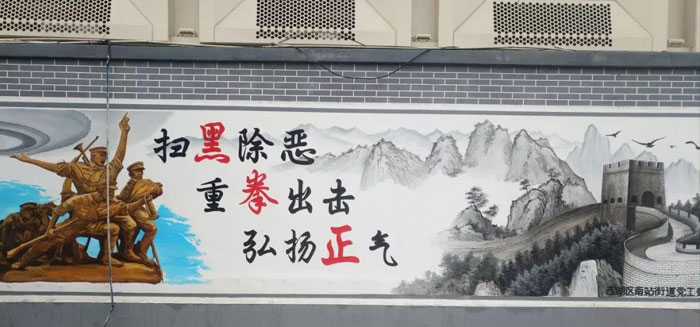 扫黑除恶
重拳出击
弘扬正气
西湖区南站街道党工